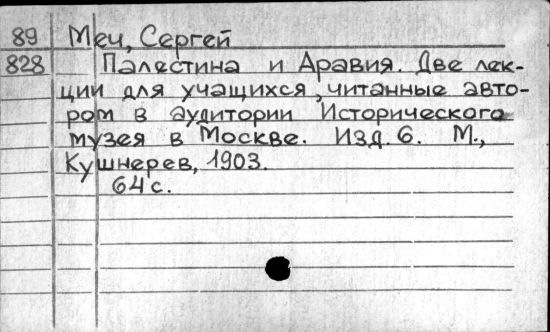 89 Меч, Сергей
828 Палестина и Аравия. Две лек-
ции для учащихся, читанные авто-
ром в аудитории Исторического
музея в Москве. Изд. 6. М.,
Кушнерев, 1903.
64 с.